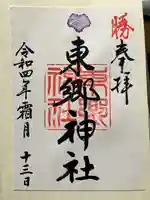 勝
奉拝
東郷神社
令和四年霜月
十三日